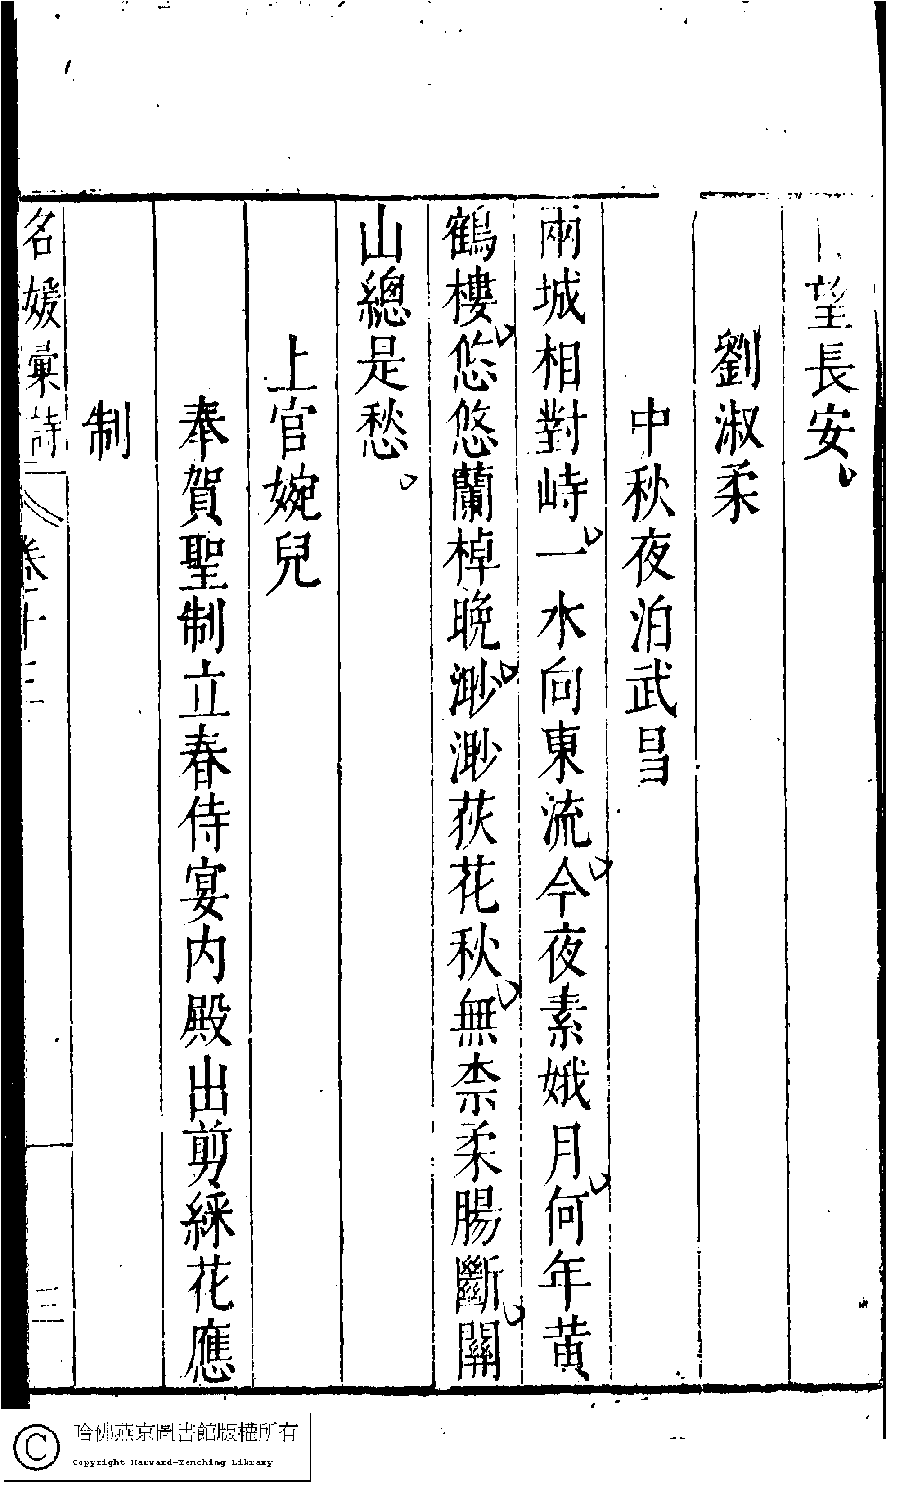 望長安
劉淑柔
中秋夜泊武昌
兩城相對峙一水向東流今夜素娥月何年黃
鶴樓悠悠蘭棹晚渺渺荻花秋無柰柔腸斷關
山總是愁
上官婉兒
奉賀聖制立春侍宴内殿出剪綵花應
制
名媛彙詩 卷十二 三
哈佛燕京圖書館版權所有
Copyright Harvard-Yenching Library